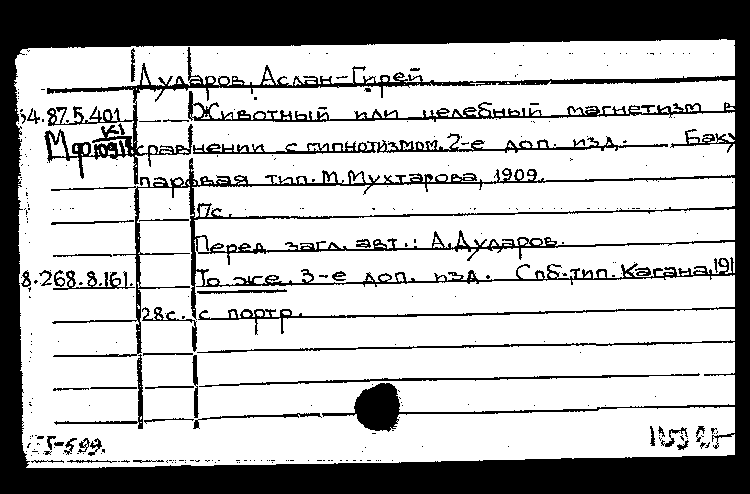 Дударов, Аслан-Гирей.
34.87.5.401 Животный или целебный магнетизм в
Мф К1 сравнении с гипнотизмом. 2-е доп. изд. Баку
паровая тип. М.Мухтарова, 1909.
17с.
Перед загл. авт.: А.Дударов.
8.268.8.161. То же. 3-е доп. изд. Спб. тип. Кагана, 191
28с. с портр.
-599.